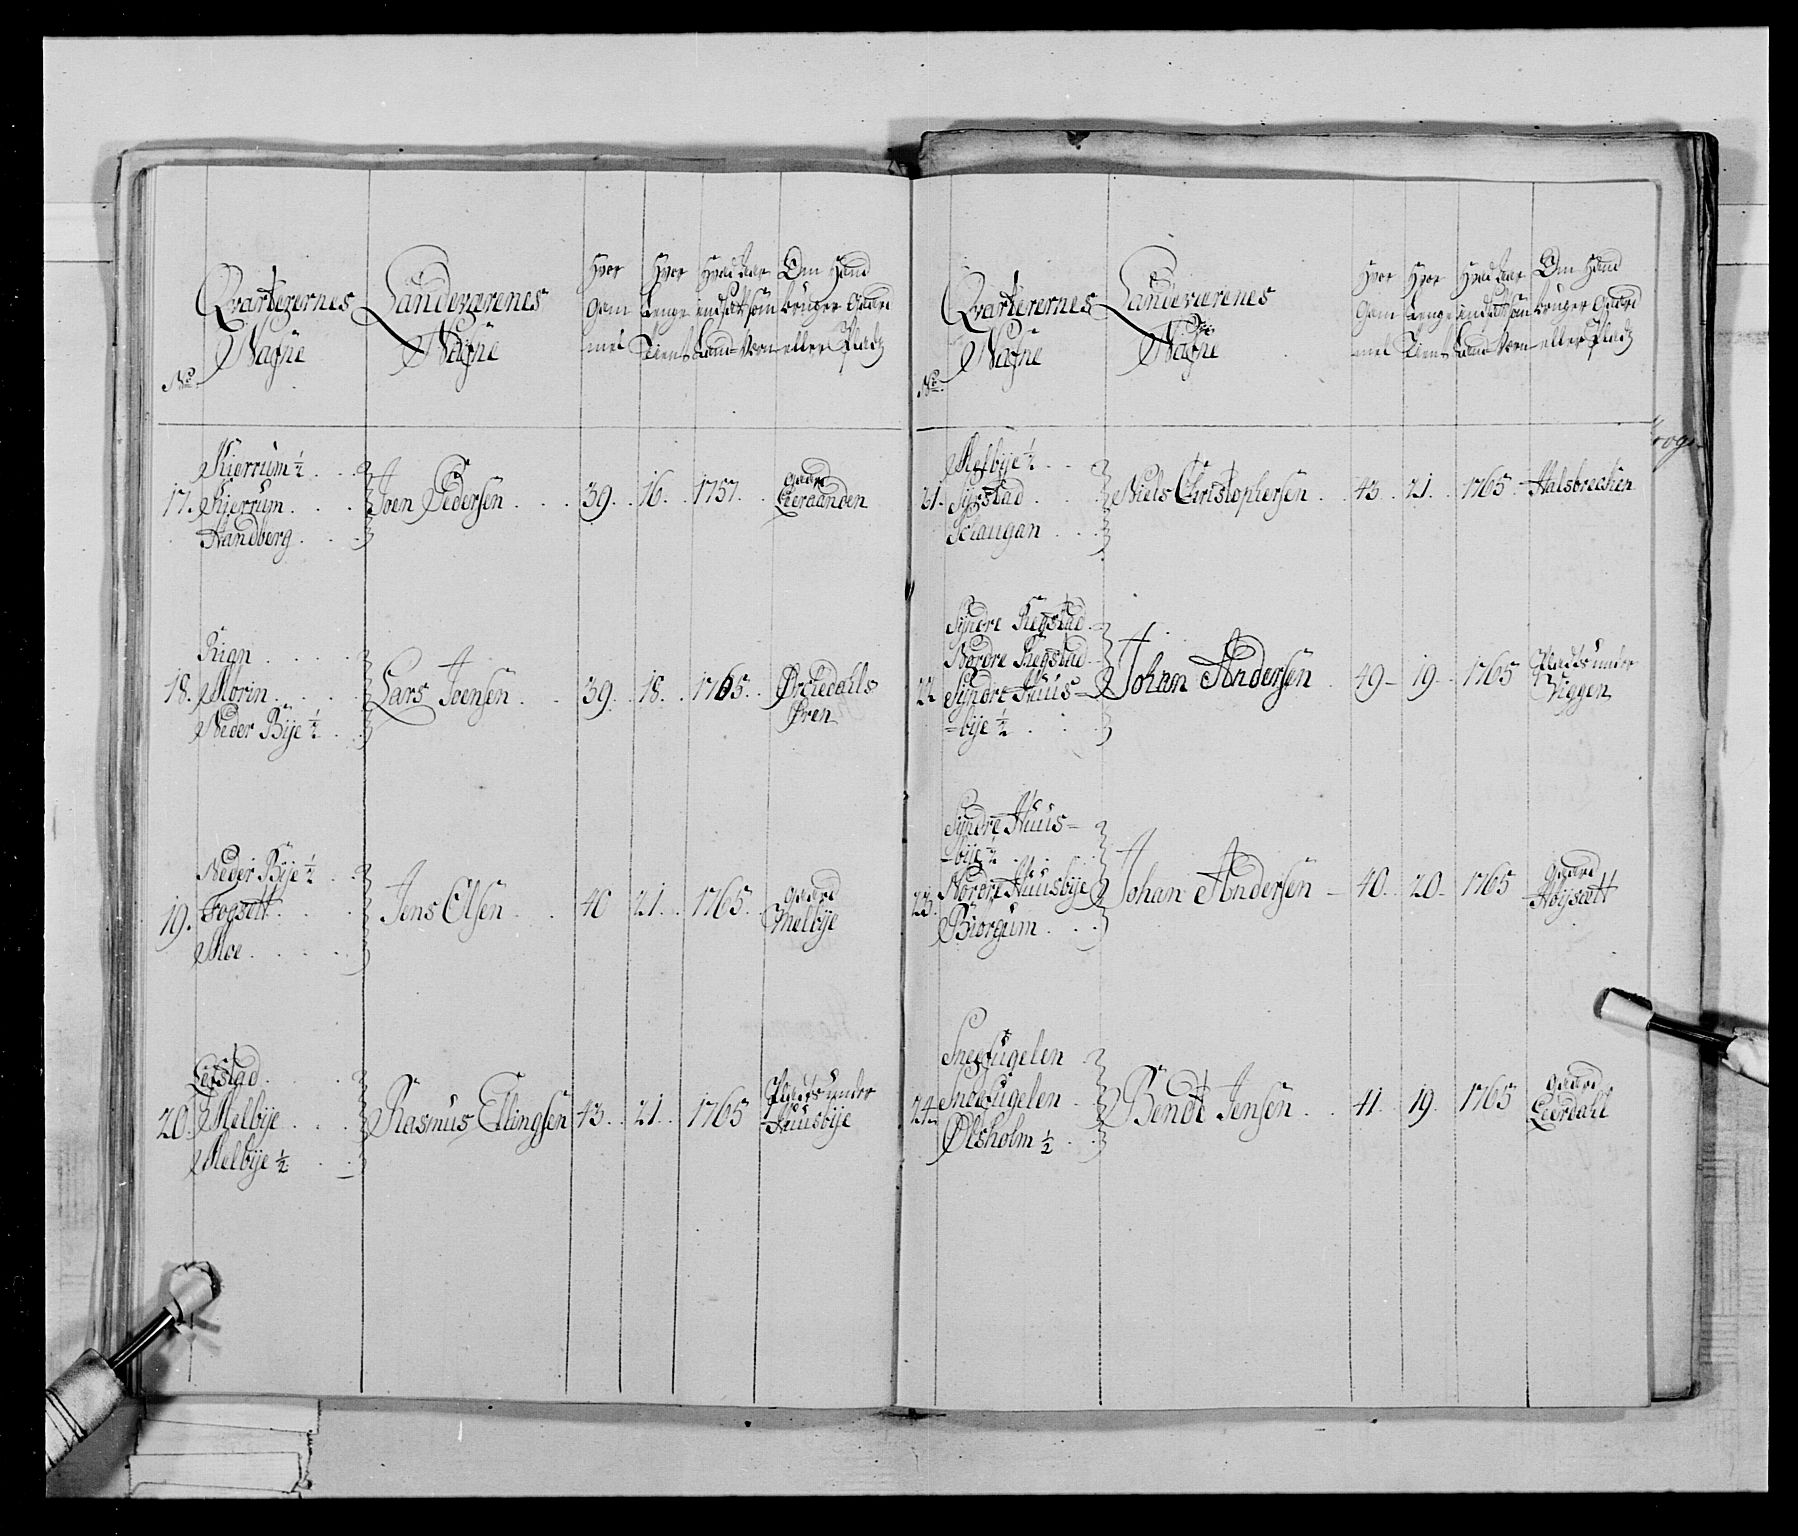 No
Qvarterernes
Nafne
Landeværenes
Nafne
Hvor
Gam
mel
Hvor
Lenge
Tient
Hvad Aar
indsatt som
Land-Vern
Om Hand
bruger Gaard
eller Plads
17. Kierrum ½ . . .
Kjerrum . . .
Handberg . . .
Joen Pedersen . . . 39. 16. 1757. Gaard
Leeraanden
18. Rian . . . .
Morin . . . .
Neder Bÿe ½ . .
Lars Joensen . . 39. 18. 1765. Ørkedahls
Øren
19. Neder Bÿe ½ . .
Fogsett . . .
Moe . . . . .
Jens Olsen . . 40 21. 1765. Gaard
Melbÿe
20. Leistad . . .
Melbÿe . . .
Melbÿe ½ . .
Rasmus Ellingsen 43. 21. 1765 Plads under
Huusbÿe
No.
Qvarterernes
Nafne
Landeværenes
Nafne
Hvor
Gam
mel
Hvor
Lenge
Tient
Hvad Aar
indsatt som
Land Vern
Om Hand
bruger Gaard
eller Plads
21. Melbÿe ½ . . .
Sysstad . . .
Schaugan . . .
Niels Christophersen . 43. 21. 1765. Halsbrechen
22 Syndre Regstad
Nordre Regstad
Syndre Huus-
-bÿe ½ . . .
Johan Andersen . 49- 19. 1765 Plads under
Viggen
23. Syndre Huus-
-bÿe ½ . . .
Nordre Huusbÿe
Biorgum . . .
Johan Andersen - 40. 20- 1765 Gaard
Høysett
24. Snefugelen
Snefugelen .
Ølsholm ½ . .
Bendt Jensen . . 41. 19. 1765 Gaard
Leerdahl